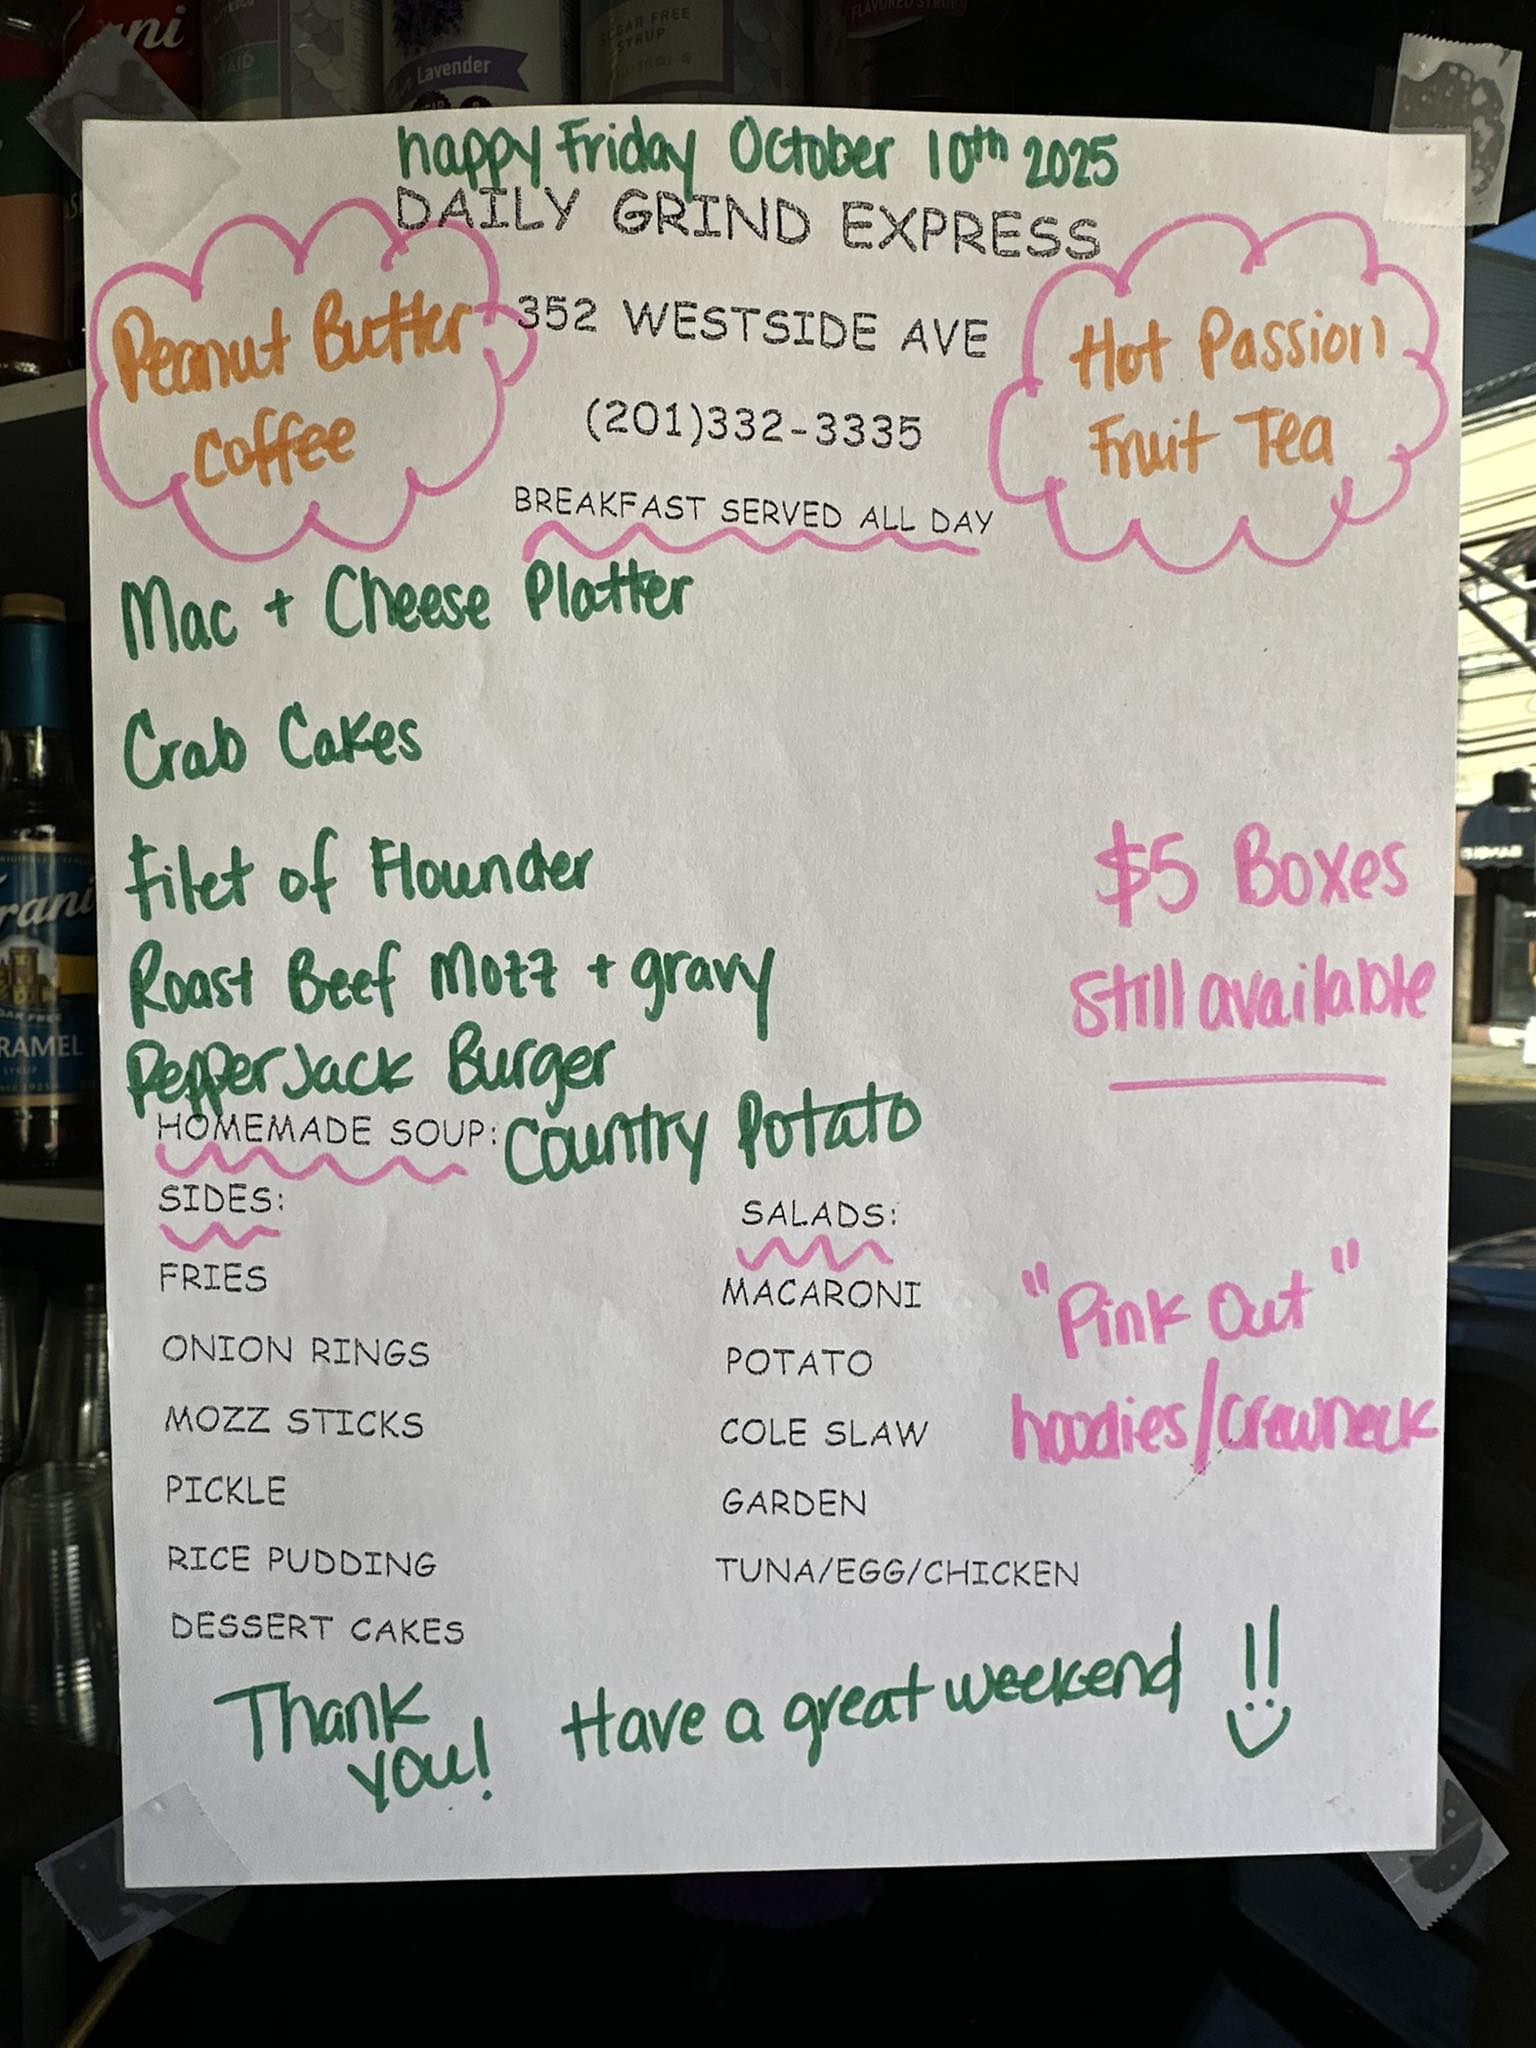 rani
Lavender
SUGAR FREE
SYRUP
FLAVORED SYRUP
happy Friday October 10th 2025
DAILY GRIND EXPRESS
Peanut Butter
Coffee
352 WESTSIDE AVE
Hot Passion
Fruit Tea
(201)332-3335
BREAKFAST SERVED ALL DAY
Mac + Cheese Platter
Crab Cakes
Filet of Flounder
$5 Boxes
Still available
Roast Beef Mozz + gravy
PepperJack Burger
HOMEMADE SOUP: Country Potato
SIDES:
FRIES
ONION RINGS
MOZZ STICKS
PICKLE
RICE PUDDING
DESSERT CAKES
SALADS:
MACARONI
POTATO
COLE SLAW
GARDEN
TUNA/EGG/CHICKEN
"Pink Out"
hoodies/Crewneck
Thank
you!
Have a great weekend !!
rani
RAMEL
SYRUP